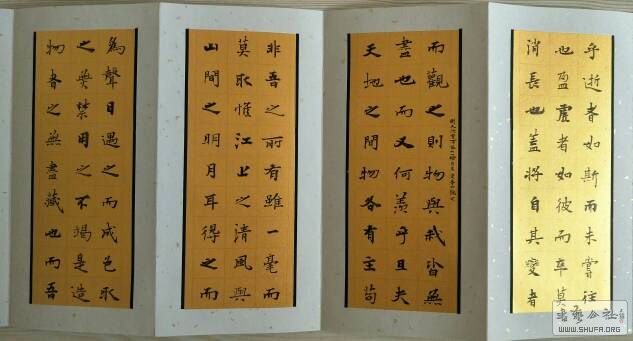 乎逝者如斯而未嘗往
也盈虛者如彼而卒莫
消長也蓋將自其變者
而觀之則物與我皆無
盡也而又何羨乎且夫
天地之間物各有主苟
非吾之所有雖一毫而
莫取惟江上之清風與
山間之明月耳得之而
為聲目遇之而成色取
之無禁用之不竭是造
物者之無盡藏也而吾
書藝公社
WWW.SHUFA.ORG